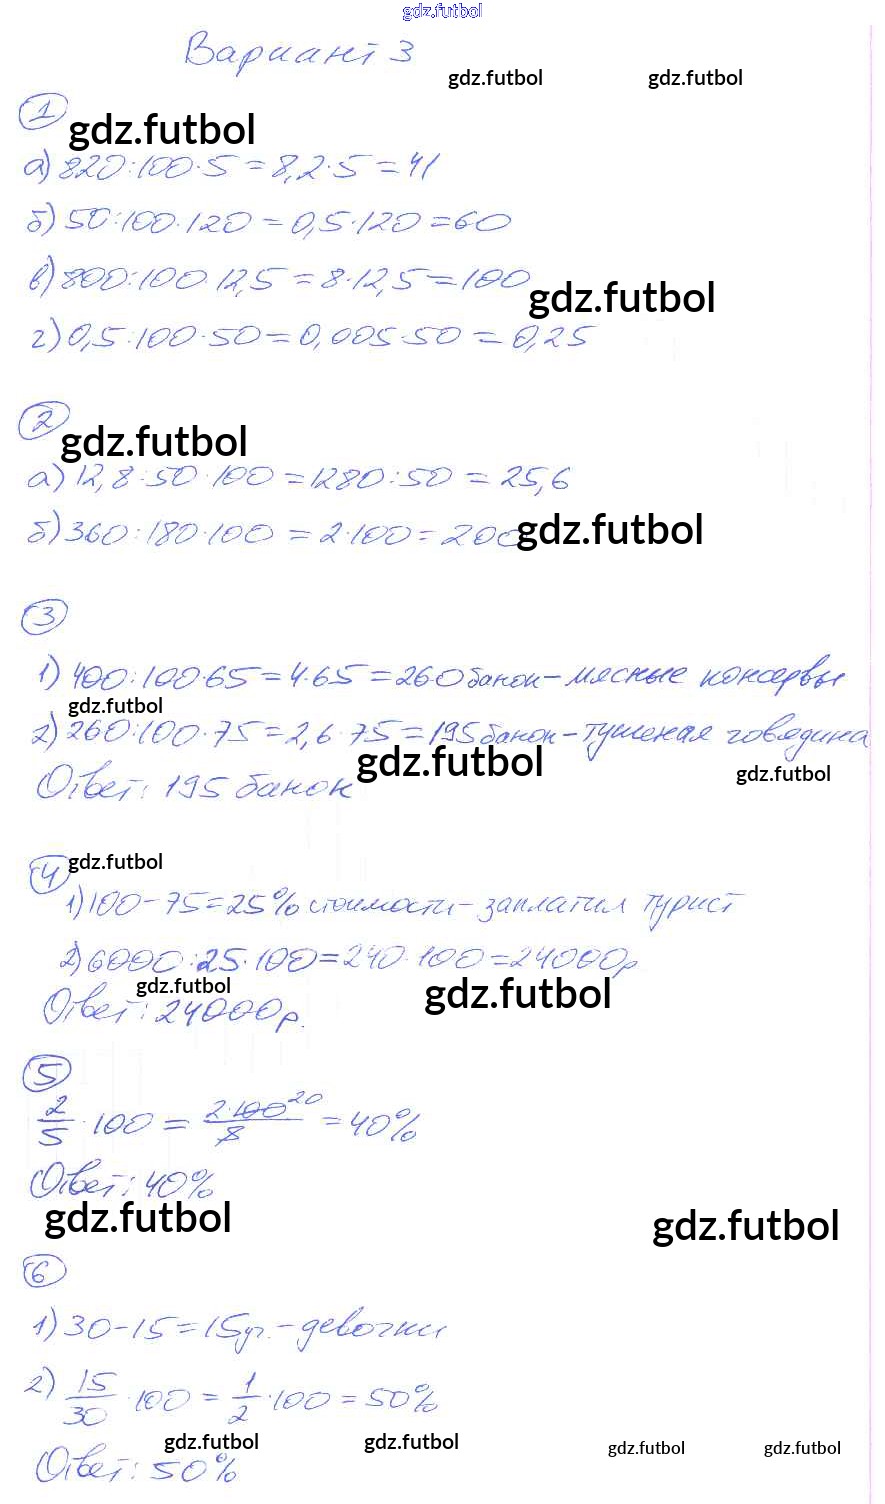 gdz.futbol
Вариант 3
gdz.futbol gdz.futbol
1
gdz.futbol
а) 820:100·5=8,2·5=41
б) 50:100·120=0,5·120=60
в) 800:100·12,5=8·12,5=100
gdz.futbol
г) 0,5:100·50=0,005·50=0,25
2
gdz.futbol
а) 12,8:50·100=1280:50=25,6
б) 360:180·100=2·100=200
gdz.futbol
3
1) 400:100·65=4·65=260 банок-мясные консервы
gdz.futbol
2) 260:100·75=2,6·75=195 банок-тушеная говядина
gdz.futbol gdz.futbol
Ответ: 195 банок
4
gdz.futbol
1) 100-75=25% стоимости-заплатил турист
2) 6000:25·100=240·100=24000р
gdz.futbol gdz.futbol
Ответ: 24000р.
5
2/5·100=2·100 20/5=40%
Ответ: 40%
gdz.futbol gdz.futbol
6
1) 30-15=15уч.-девочки
2) 15/30·100=1/2·100=50%
gdz.futbol gdz.futbol gdz.futbol gdz.futbol
Ответ: 50%